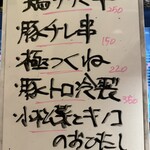 250
・豚チレ串
150
・極つくね
220
・豚トロ冷製
350
・小松菜とキノコ
のおひたし